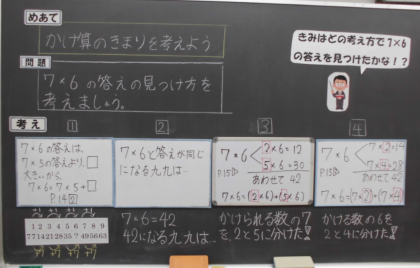 めあて
かけ算のきまりを考えよう
問題
7×6の答えの見つけ方を
考えましょう。
きみはどの考え方で7×6
の答えを見つけたかな!?
考え
1
7×6の答えは、
7×5の答えより、□
大きいから、
7×6=7×5+□
P.14図
1 2 3 4 5 6 7 8 9
7 14 21 28 35 42 49 56 63
2
7×6と答えが同じ
になる九九は…
7×6=42
42になる九九は…
3
7×6
2×6=12
5×6=30
P.15図
あわせて 42
7×6=(2×6)+(5×6)
かけられる数の7
を、2と5に分けた!!
4
7×6
7×2=14
7×4=28
P.15図
あわせて 42
7×6=(7×2)+(7×4)
かける数の6を
2と4に分けた!!